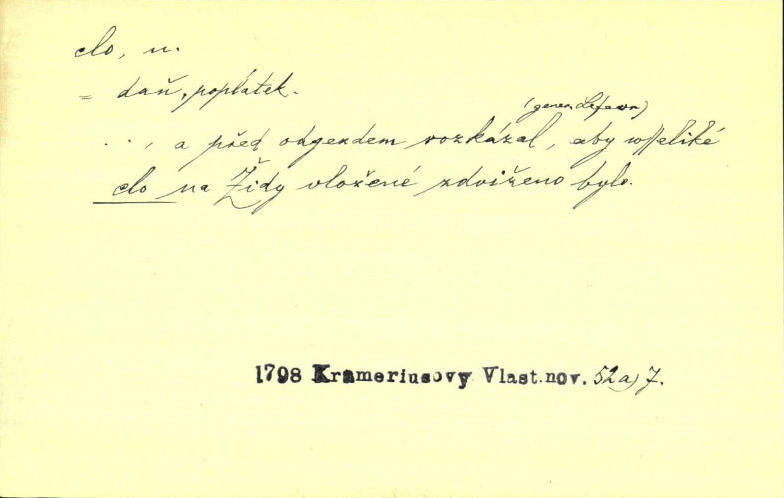 clo, n.
= daň, poplatek.
(gener. Lefevr)
..., a před odgezdem rozkázal, aby wsseliké
clo na Židy vložené zdviženo bylo.
1798 Krameriusovy Vlast.nov. 52a) 7.